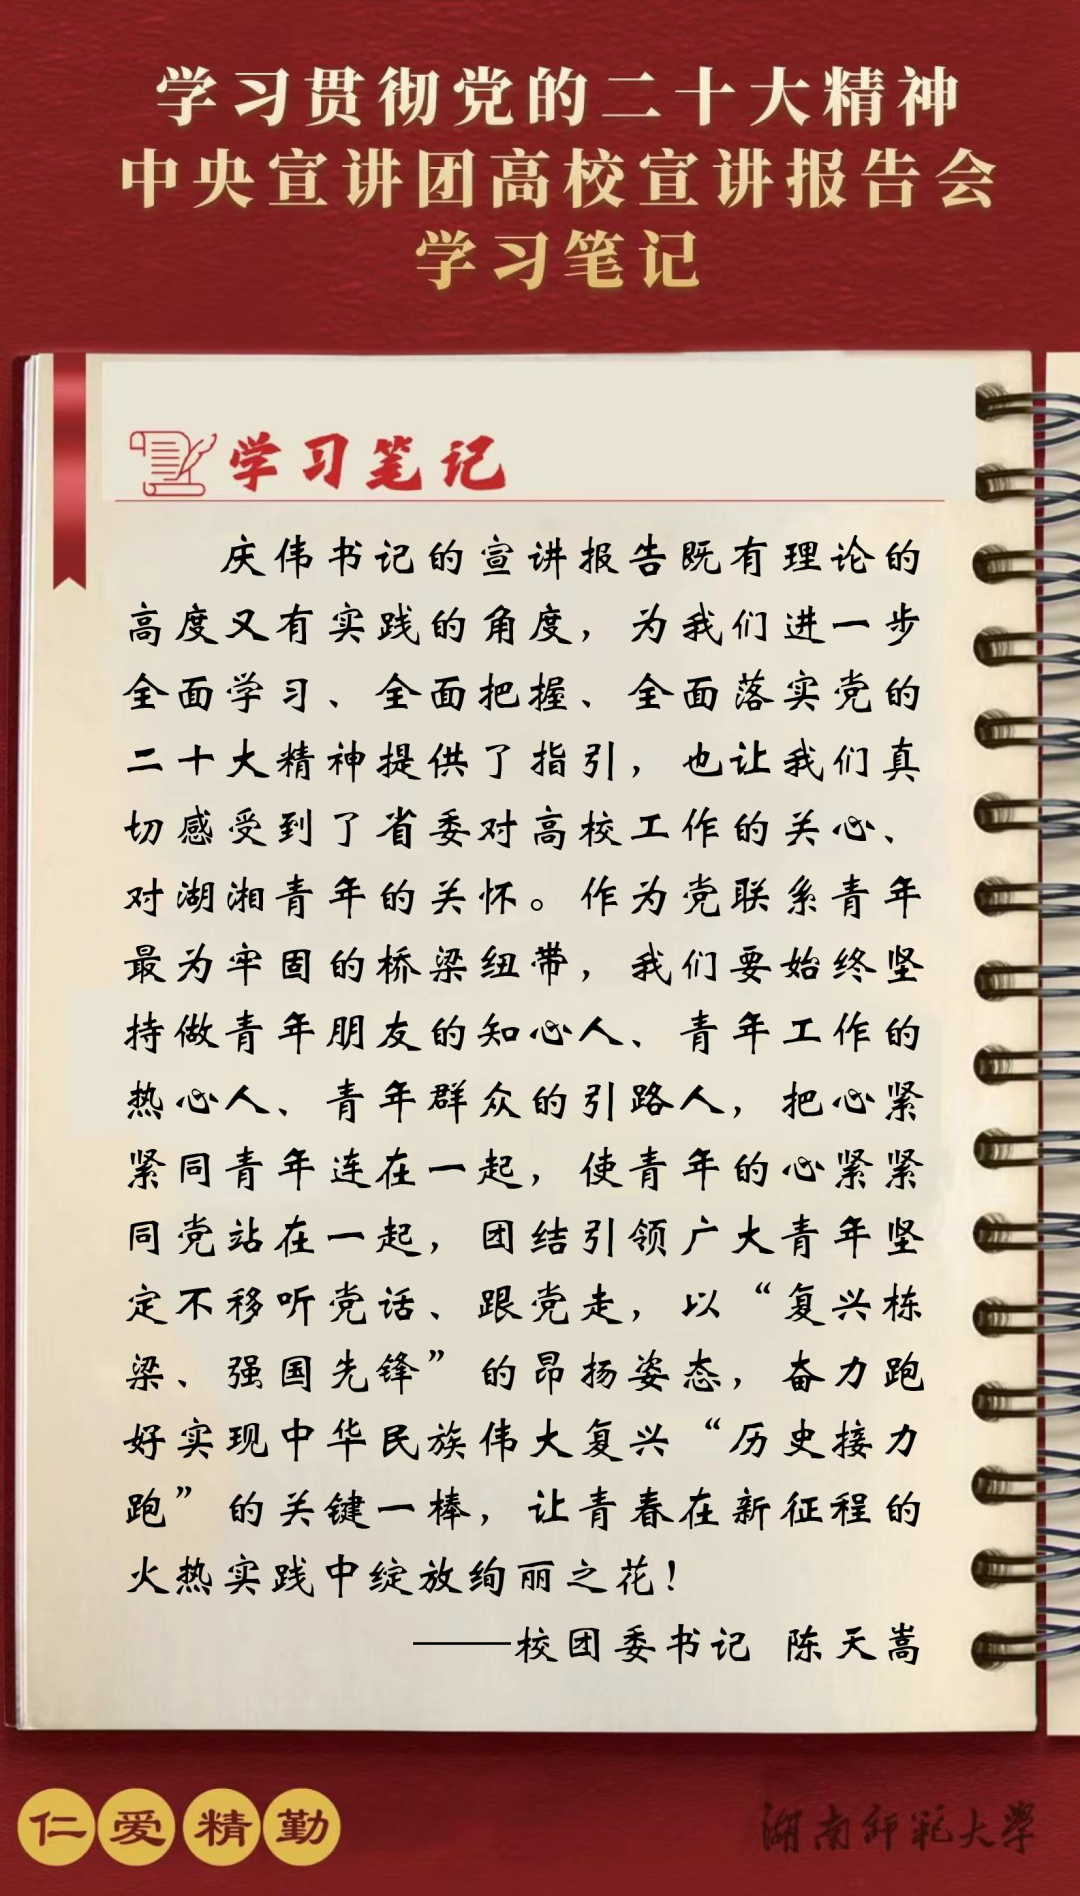 学习贯彻党的二十大精神
中央宣讲团高校宣讲报告会
学习笔记
学习笔记
庆伟书记的宣讲报告既有理论的
高度又有实践的角度，为我们进一步
全面学习、全面把握、全面落实党的
二十大精神提供了指引，也让我们真
切感受到了省委对高校工作的关心、
对湖湘青年的关怀。作为党联系青年
最为牢固的桥梁纽带，我们要始终坚
持做青年朋友的知心人、青年工作的
热心人、青年群众的引路人，把心紧
紧同青年连在一起，使青年的心紧紧
同党站在一起，团结引领广大青年坚
定不移听党话、跟党走，以“复兴栋
梁、强国先锋”的昂扬姿态，奋力跑
好实现中华民族伟大复兴“历史接力
跑”的关键一棒，让青春在新征程的
火热实践中绽放绚丽之花！
——校团委书记 陈天嵩
仁爱精勤
湖南师范大学